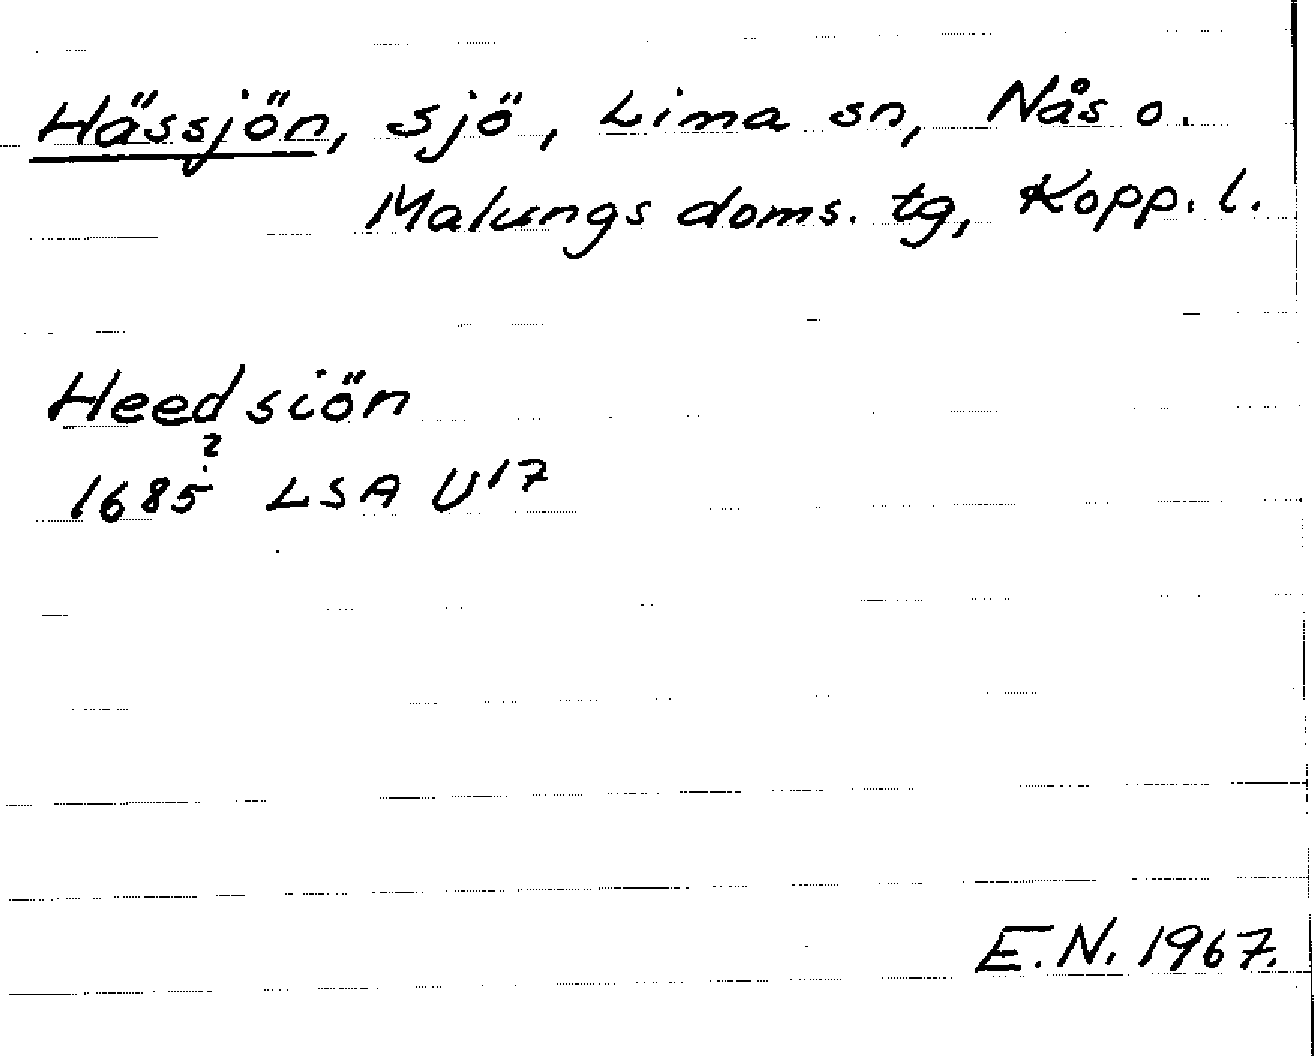 Hässjön, sjö, Lima sn, Nås o.
Malungs doms. tg, Kopp. l.
Heedsiön
?
1685 LSA U17
E.N. 1967.